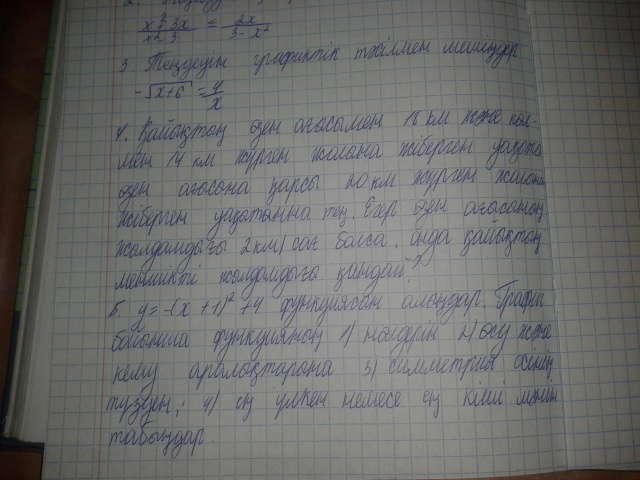 x² + 3x / x² - 3 = 2x / 3 - x²
3 Теңдеуін графиктік тәсілмен шешіңдер
-√x+6 = 4/x
4. Қайықтың өзен ағысымен 18 км және көл-
мен 14 км жүрген жолына жіберген уақыты
өзен ағысына қарсы 20 км жүрген жолына
жіберген уақытына тең. Егер өзен ағысының
жылдамдығы 2 км/сағ болса, онда қайықтың
меншікті жылдамдығы қандай?
5. y = -(x+1)² + 4 функциясын алыңдар. Графиг
бойынша функцияның 1) нөлдерін 2) өсу және
кему аралықтарына 3) симметрия осінің
түзуін; 4) ең үлкен немесе ең кіші мәнін
табыңдар.